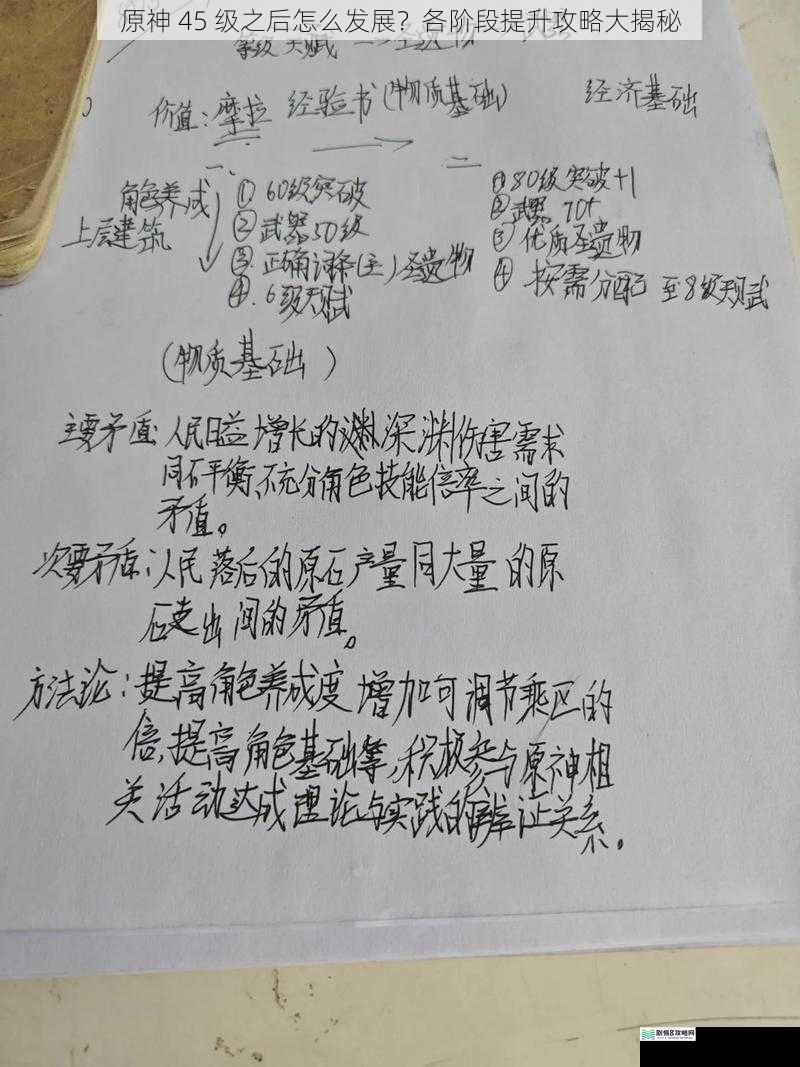 原神 45 级之后怎么发展？各阶段提升攻略大揭秘
等级 天赋 圣遗物
价值：摩拉 经验书(物质基础) 经济基础
一、 二
角色养成
上层建筑
① 60级突破
② 武器50级
③ 正确词条(主)圣遗物
④ .6级天赋
① 80级突破+1
② 武器 70+
③ 优质圣遗物
④ 按需分配 至8级天赋
(物质基础)
主要矛盾: 人民日益增长的深渊伤害需求
同不平衡、不充分角色技能倍率之间的
矛盾。
次要矛盾: 人民落后的原石产量同大量的原
石支出间的矛盾。
方法论：提高角色养成度 增加可调节乘区的
倍,提高角色基础等,积极参与原神相
关活动达成理论与实践的辨证关系。
剧情8攻略网